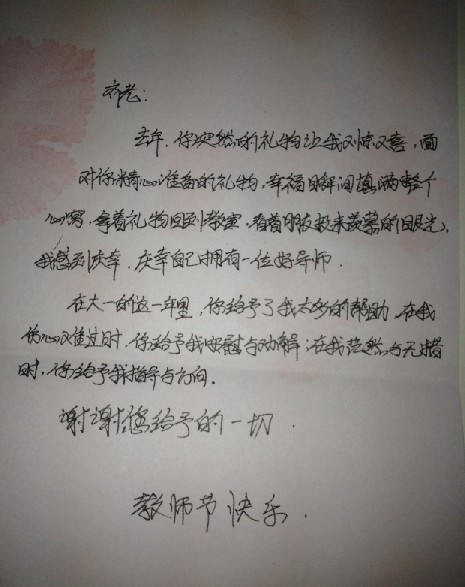 齐老:
去年,你突然的礼物让我又惊又喜,面
对你精心准备的礼物,幸福瞬间填满整个
心窝,拿着礼物回到教室,看着朋友投来羡慕的目光,
我感到庆幸,庆幸自己拥有一位好导师.
在大一的这一年里,你给予了我太多的帮助,在我
伤心难过时,你给予我安慰与劝解;在我茫然与无措
时,你给予我指导与方向.
谢谢您给予的一切.
教师节快乐.